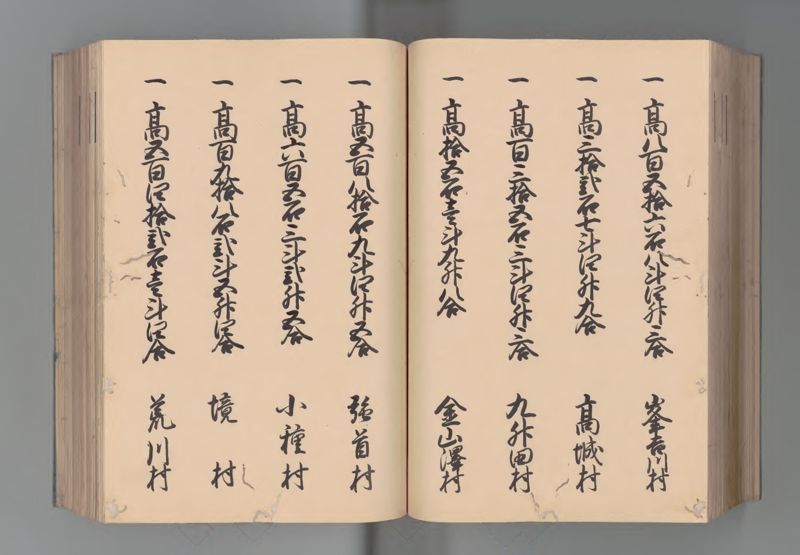 一 高八百五拾六石八斗四升三合 峯吉川村
一 高三拾弐石七斗四升九合 高城村
一 高百三拾五石三斗四升三合 九升田村
一 高拾五石壱斗九升八合 金山澤村
一 高五百八拾石九斗四升五合 強首村
一 高六百五石三斗弐升五合 小種村
一 高百九拾八石弐斗五升四合 境村
一 高五百四拾弐石壱斗四合 荒川村